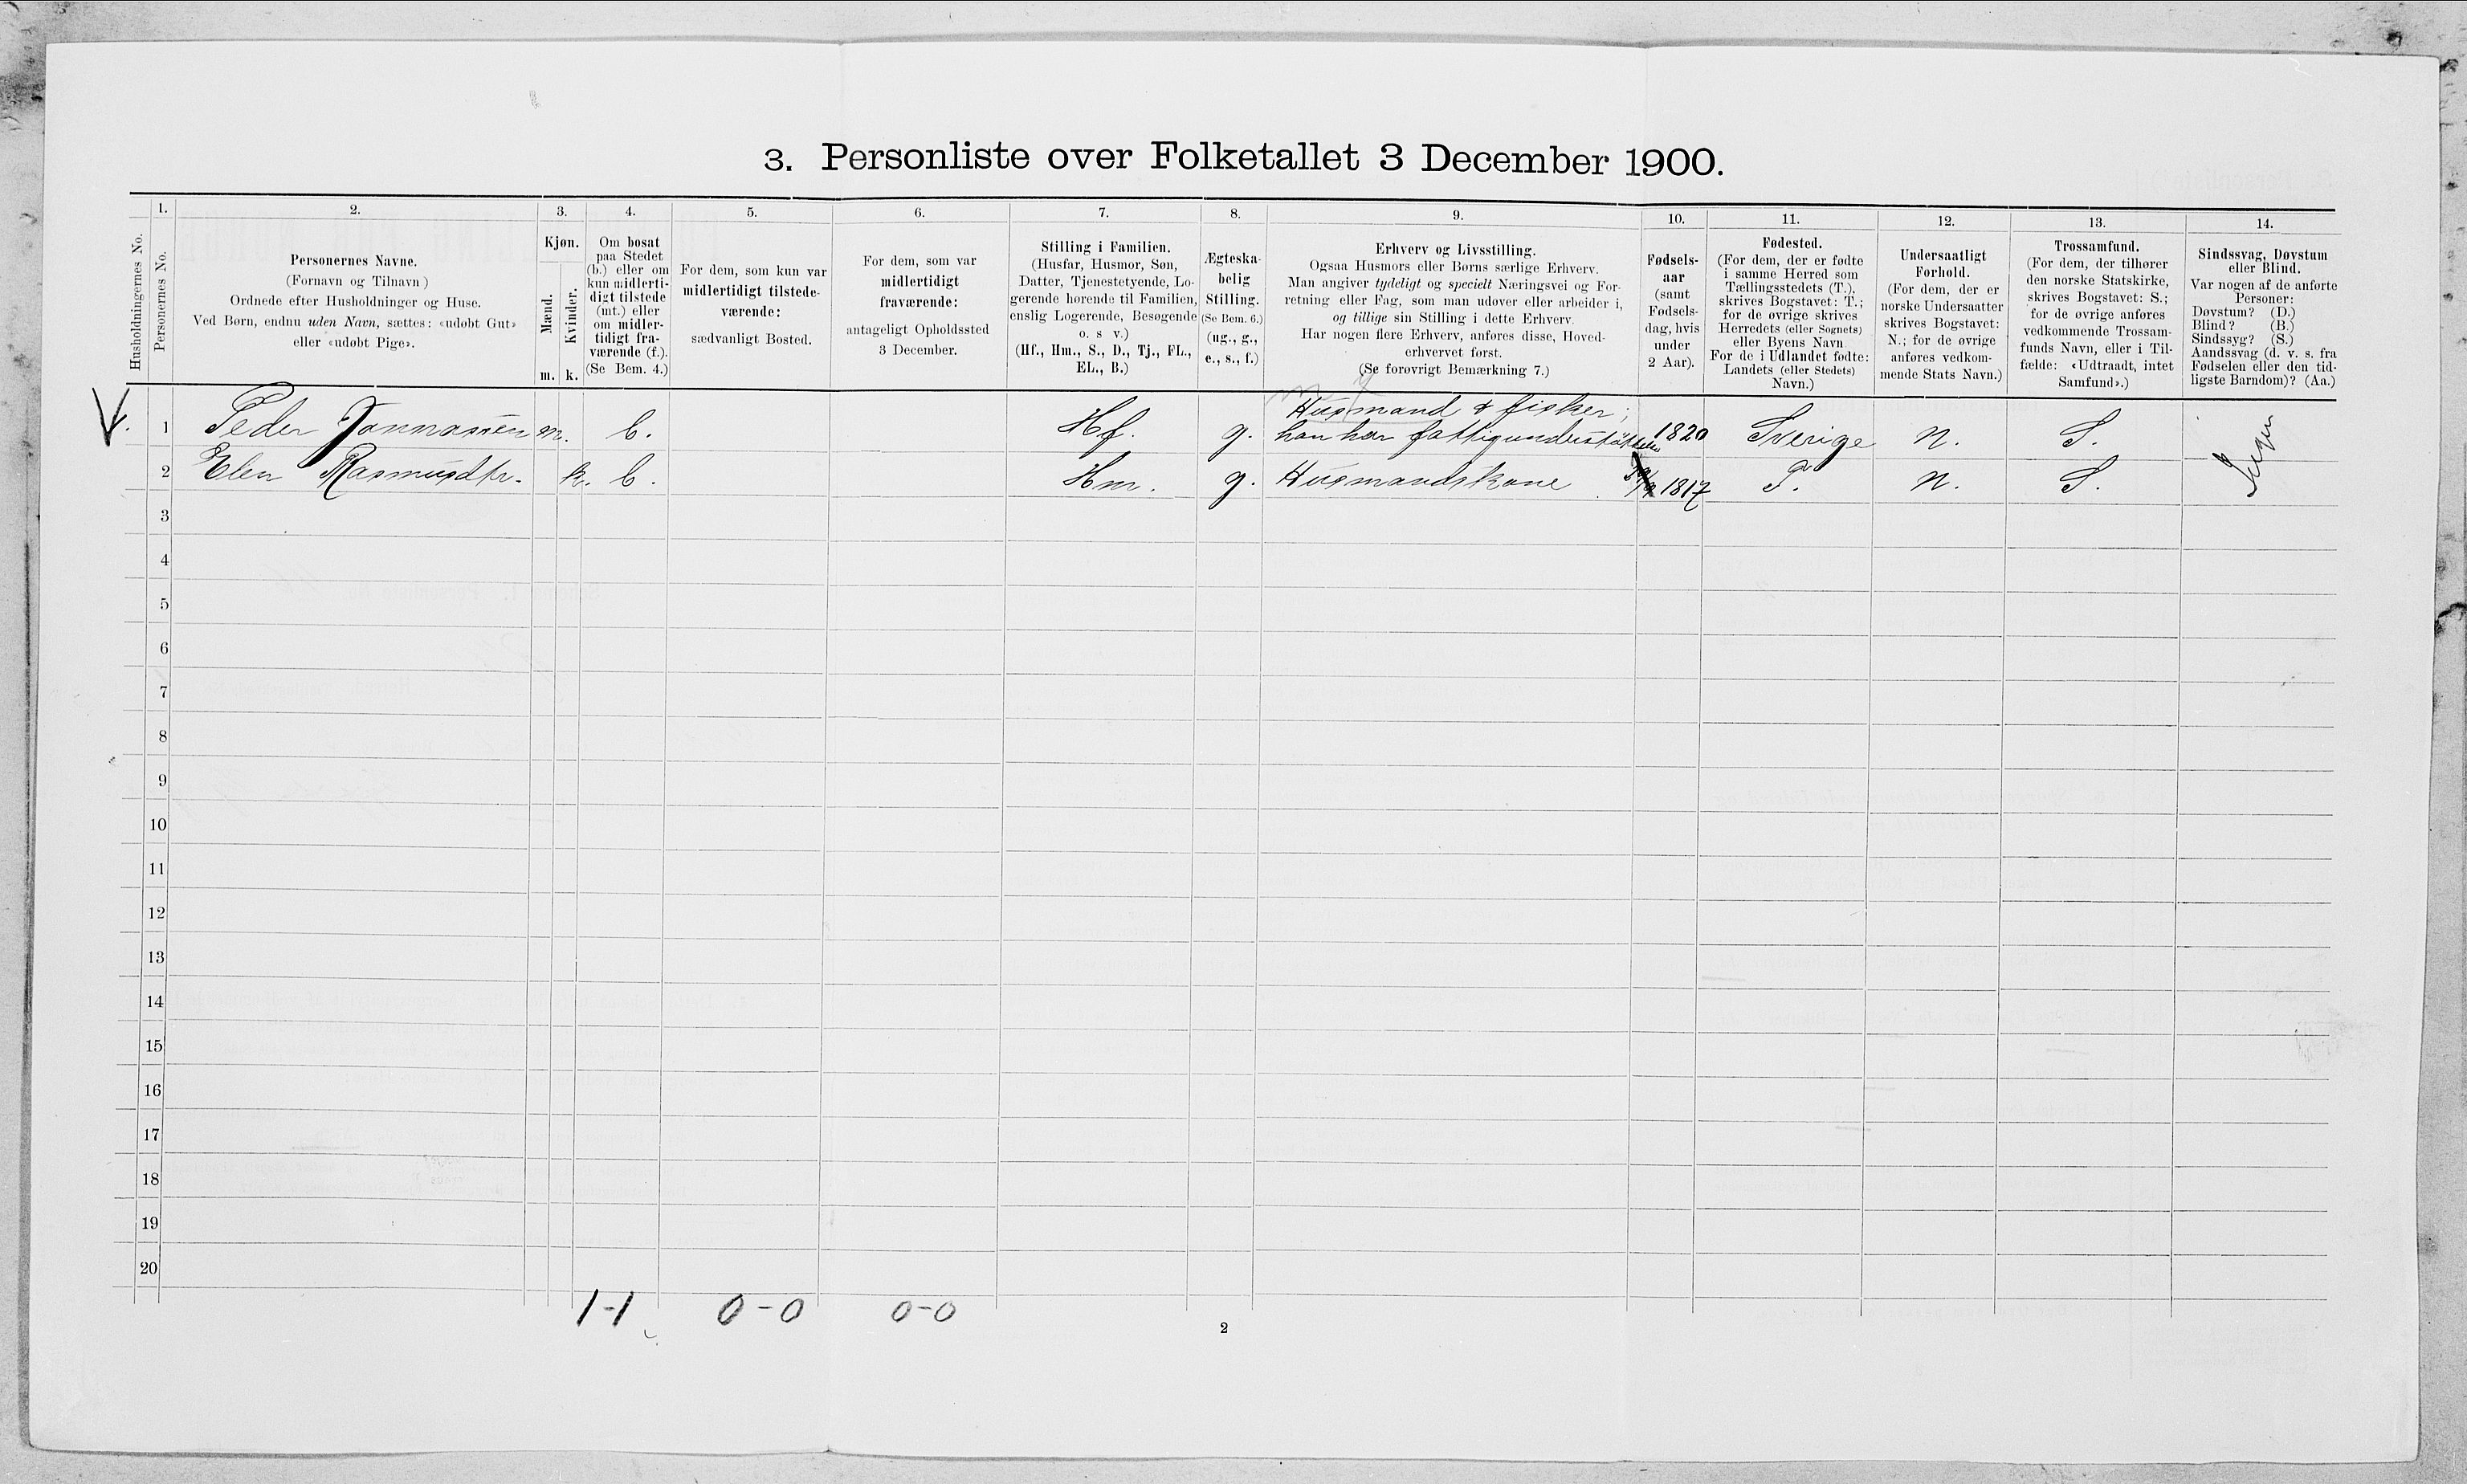 3. Personliste over Folketallet 3 December 1900.
Husholdningernes No.
1.
Personernes No.
2.
Personernes Navne.
(Fornavn og Tilnavn)
Ordnede efter Husholdninger og Huse.
Ved Børn, endnu uden Navn, sættes: «udøbt Gut»
eller «udøbt Pige».
3.
Kjøn.
Mænd.
Kvinder.
m. k.
4.
Om bosat
paa Stedet
(b.) eller om
kun midlerti-
digt tilstede
(mt.) eller
om midler-
tidigt fra-
værende (f.).
(Se Bem. 4.)
5.
For dem, som kun var
midlertidigt tilstede-
værende:
sædvanligt Bosted.
6.
For dem, som var
midlertidigt
fraværende:
antageligt Opholdssted
3 December.
7.
Stilling i Familien.
(Husfar, Husmor, Søn,
Datter, Tjenestetyende, Lo-
gerende hørende til Familien,
enslig Logerende, Besøgende
o. s v.)
(Hf., Hm., S., D., Tj., FL.,
EL., B.)
8.
Ægteska-
belig
Stilling.
(Se Bem. 6.)
(ug., g.,
e., s., f.)
9.
Erhverv og Livsstilling.
Ogsaa Husmors eller Børns særlige Erhverv.
Man angiver tydeligt og specielt Næringsvei og For-
retning eller Fag, som man udøver eller arbeider i,
og tillige sin Stilling i dette Erhverv.
Har nogen flere Erhverv, anføres disse, Hoved-
erhvervet først.
(Se forøvrigt Bemærkning 7.)
10.
Fødsels-
aar
(samt
Fødsels-
dag, hvis
under
2 Aar).
11.
Fødested.
(For dem, der er fødte
i samme Herred som
Tællingsstedets (T.),
skrives Bogstavet: T.;
for de øvrige skrives
Herredets (eller Sognets)
eller Byens Navn
For de i Udlandet fødte:
Landets (eller Stedets)
Navn.)
12.
Undersaatligt
Forhold.
(For dem, der er
norske Undersaatter
skrives Bogstavet:
N.; for de øvrige
anføres vedkom-
mende Stats Navn.)
13.
Trossamfund.
(For dem, der tilhører
den norske Statskirke,
skrives Bogstavet: S.;
for de øvrige anføres
vedkommende Trossam-
funds Navn, eller i Til-
fælde: «Udtraadt, intet
Samfund».)
14.
Sindssvag, Døvstum
eller Blind.
Var nogen af de anførte
Personer:
Døvstum? (D.)
Blind? (B.)
Sindssyg? (S.)
Aandssvag (d. v. s. fra
Fødselen eller den tid-
ligste Barndom)? (Aa.)
1 Peder m. b. Hf. g. Husmand & fisker;
han har 1820 Sverige n. S. Ingen
2 Elen Rasmusdtr. k. b. Hm. g. Husmandskone 1817 T. n. S.
3
4
5
6
7
8
9
10
11
12
13
14
15
16
17
18
19
20
1-1 0-0 0-0
2